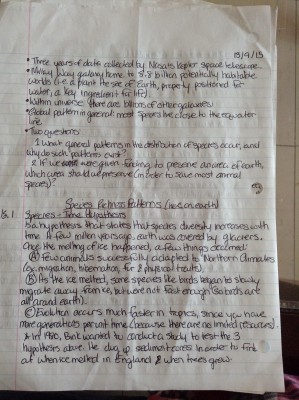 15/9/15
• Three years of data collected by Nasa's Kepler space telescope
• Milky Way galaxy home to 8.8 billion potentially habitable
worlds (i.e. a planet the size of Earth, properly positioned for
water, a key ingredient for life)
• Within universe there are billions of other galaxies
• Global pattern in general: most species live close to the equator
line
• Two questions:
1. What general patterns in the distribution of species occur, and
why do such patterns exist?
2. If we were given funding to preserve an area of earth,
which area should we preserve (in order to save most animal
species)?
Species Richness Patterns (here on earth)
§.1 Species - Time Hypothesis
Is a hypothesis that states that species diversity increases with
time. A few million years ago, earth was covered by glaciers.
Once the melting of ice happened, a few things occurred:
(A) Few animals successfully adapted to Northern Climates
(ex. migration, hibernation, fur & physical traits).
(B) As the ice melted, some species like birds began to slowly
migrate away from ice, but were not fast enough (so birds are
all around earth).
(C) Evolution occurs much faster in tropics, since you have
more generations per unit time (because there are no limited resources).
In 1980, Birk wanted to conduct a study to test the 3
hypothesis above. He dug up sediment cores in order to find
out when ice melted in England & when trees grew.